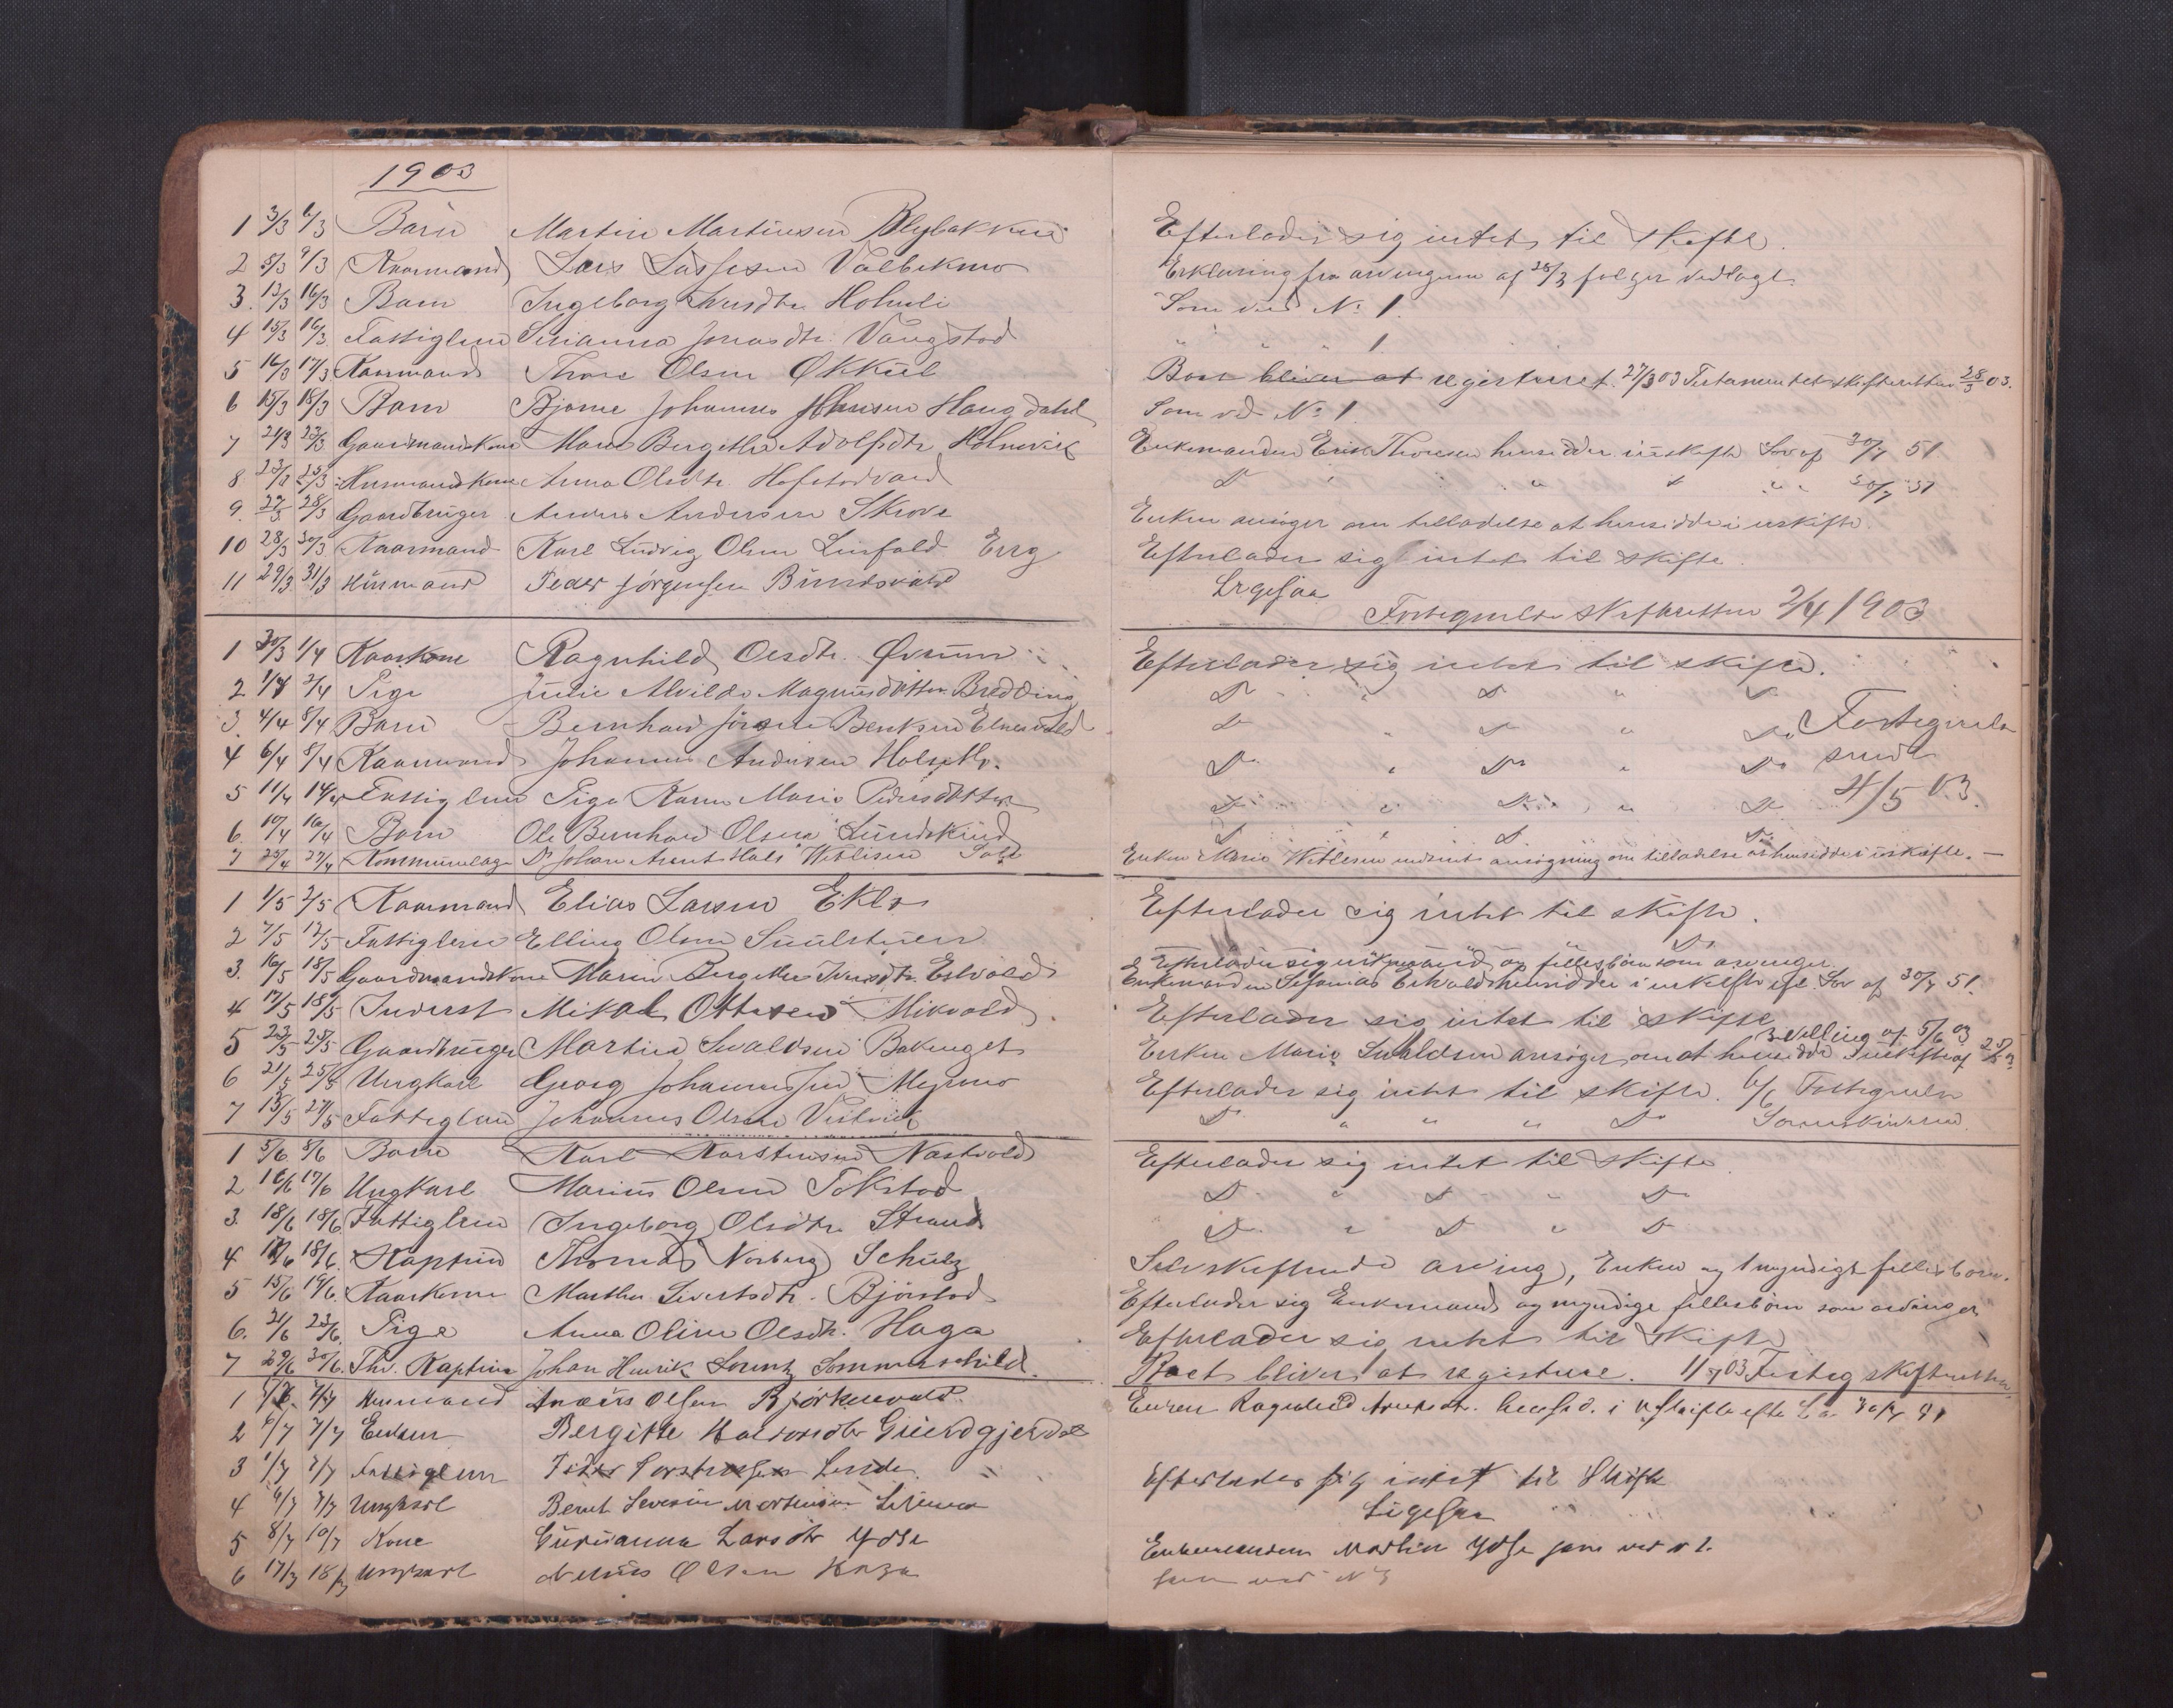 1903
1 3/3 6/3 Barn Martin Martinsen Blybakken Efterlader sig intet til skifte.
2 5/3 9/3 Kaarmand Lars Lassesen Valbekmo Erklæring fra arvingerne af 28/3 følger vedlagt
3. 13/3 16/3 Barn Ingeborg Iversdtr. Holmli Som ved No 1.
4 15/3 16/3 Fattiglem Serianna Jonasdtr. Vangstad " " " 1.
5 16/3 17/3 Kaarmand Thore Olsen Økkül Boet bliver at registreret. 27/3 03 Testamentet skifteretten 28/3 03.
6 15/3 18/3 Barn Bjarne Johannes Johnsen Haugdahl Som ved No 1
7 21/3 23/3 Gaardmandskone Maren Bergitha Adolfsdtr. Holmvik Enkemanden Erik Thoresen hensidder i uskifte Lov af 30/7 51
8 23/3 25/3 Husmandskone Anna Olsdtr. Hofstadvald Do " " " " " 30/7 51
9. 22/3 28/3 Gaardbruger Anders Andersen Skrove Enken ansøger om tilladelse at hensidde i uskifte.
10 28/3 30/3 Kaarmand Karl Ludvig Olsen Linfald Erry Efterlader sig intet til skifte.
11 29/3 31/3 Husmand Peder Jørgensen Bundsvald Ligesaa
Fortegnelse skifteretten 2/4 1903
1 30/3 1/4 Kaarkone Ragnhild Olsdtr. Øvrum Efterlader sig intet til skifte.
2 1/4 2/4 Pige Julie Alvilde Magnusdatter Bredding Do " Do " Do
3. 4/4 8/4 Barn Bernhard Jørgen Bentsen Elnesvald Do " Do " Do Fortegnelse
4 6/4 8/4 Kaarmand Johannes Andersen Holsethr. Do " Do " Do sendt
5 11/4 14/4 Fattiglem Pige Karen Marie Pedersdatter Do " Do " Do 4/5 03.
6. 10/4 16/4 Barn Ole Bernhard Olsen Lundskind Do " Do " Do
7 25/4 27/4 Kommunelæge Dr Johan Arent Hals Wetlesen Enken Marie Wetlesen indsendt ansøgning om tilladelse at hensidde i uskifte. —
1 1/5 2/5 Kaarmand Elias Larsen Eklo Efterlader sig intet til skifte.
2 7/5 12/5 Fattiglem Elling Olsen Do
3. 16/5 18/5 Gaardmandskone Maren Bergitha Iversdtr. Estvald Efterlader sig enkemand og fællesbørn som arvinger.
Enkemanden Sefanias Estvald hensidder i uskifte efter Lov af 30/7 51.
4 17/5 18/5 Inderst Mikal Ottesen Mikvold. Efterlader sig intet til skifte
5 23/5 25/5 Gaardbruger Martin Svaldsen Bakenget Enken Marie Svaldsen ansøger om at hensidde i uskifte af 25/5 03 Bevilling af 5/6 03
6 21/5 25/5 Ungkarl Georg Johannessen Myrmo Efterlader sig intet til skifte. 6/6 Fortegnelse
7 15/5 27/5 Fattiglem Johannes Olsen Vestvik Do " " " Do Sorenskriveren.
1 5/6 8/6 Barn Karl Karstensen Nastvold Efterlader sig intet til skifte.
2 16/6 17/6 Ungkarl Marius Olsen Tokstad Do " Do " Do
3. 18/6 18/6 Fattiglem Ingeborg Olsdtr. Strand Do " Do " Do
4 17/6 18/6. Kaptein Thomas Norberg Schulz Selvskiftende arving, Enken og 1 myndigt fællesbarn.
5 15/6 19/6. Kaarkone Martha Sivertsdtr. Bjørstad Efterlader sig Enkemand og myndige fællesbørn som arvinger
6. 21/6 23/6. Pige Anna Oline Olsdtr. Haga Efterlader sig intet til skifte
7 29/6 30/6. Kaptein Johan Henrik Lorentz Sommerschild. Boet bliver at registrere. 1/7 03 Forteg skifteretten
1 7/7 Husmand Anders Olsen Bjørkenvald. Enken Ragnhild hensid. i uskifte efter Lov 30/7 51
2 6/7 7/7 Enken Bergitte Halvorsdtr Grundgjerdal
3 1/7 7/7 Fattiglem Peder Torstensen Linde. Efterlader sig intet til Skifte
4 6/7 7/7 Ungkarl Bernt Severin Mortensen Ligesaa
5 8/7 10/7 Kone Gurianna Larsdtr Ydse Enkemanden Martin Ydse som ved n 2.
6 17/7 18/7 Ungkarl Nelius Olsen Haga som ved No 3